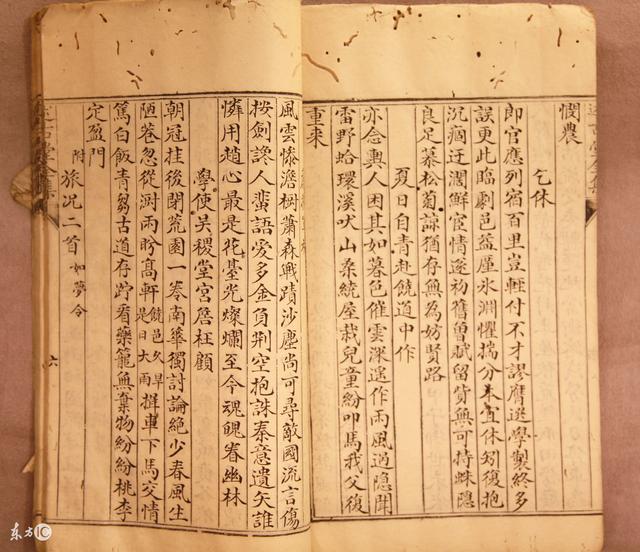 憫農
乞休
郎官應列宿百里豈輕付不才謬膺選學製終多
誤更此臨劇邑益厪氷淵懼揣分本宜休矧復抱
沉痼迂濶鮮宦情遂初舊曾賦留貲無可持蛛隱
良足慕松菊諒猶存無為妨賢路
夏日自青赴饒道中作
亦念輿人困其如暮色催雲深遙作雨風過隱聞
雷野蛤環溪吠山桑繞屋栽兒童紛叩馬我父復
重來
風雲慘澹樹蕭森戰蹟沙塵尚可尋敵國流言傷
按劍讒人蜚語愛多金負荆空抱誅秦意遺矢誰
憐用趙心最是花臺光燦爛至今魂魄眷幽林
學使吴稷堂宮詹枉顧
朝冠挂後閉荒園一卷南華獨討論絶少春風生
陋巷忽從澍雨盼髙軒饒邑久旱是日大雨損車下馬交情
篤白飯青芻古道存竚看藥籠無棄物紛紛桃李
定盈門
附旅况二首如夢令
六
东方IC